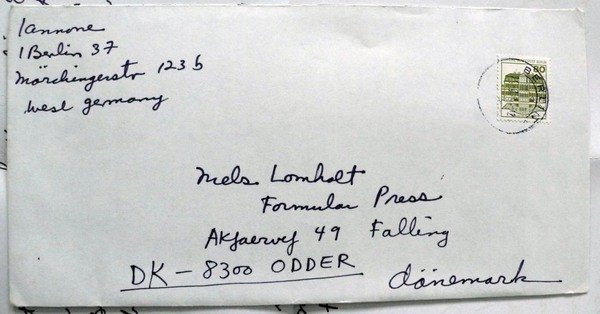 Iannone
1 Berlin 37
Mörchingerstr 123 b
West Germany
80
BERLIN
Niels Lomholt
Formular Press
Akjaervej 49 Falling
DK - 8300 ODDER
Dänemark